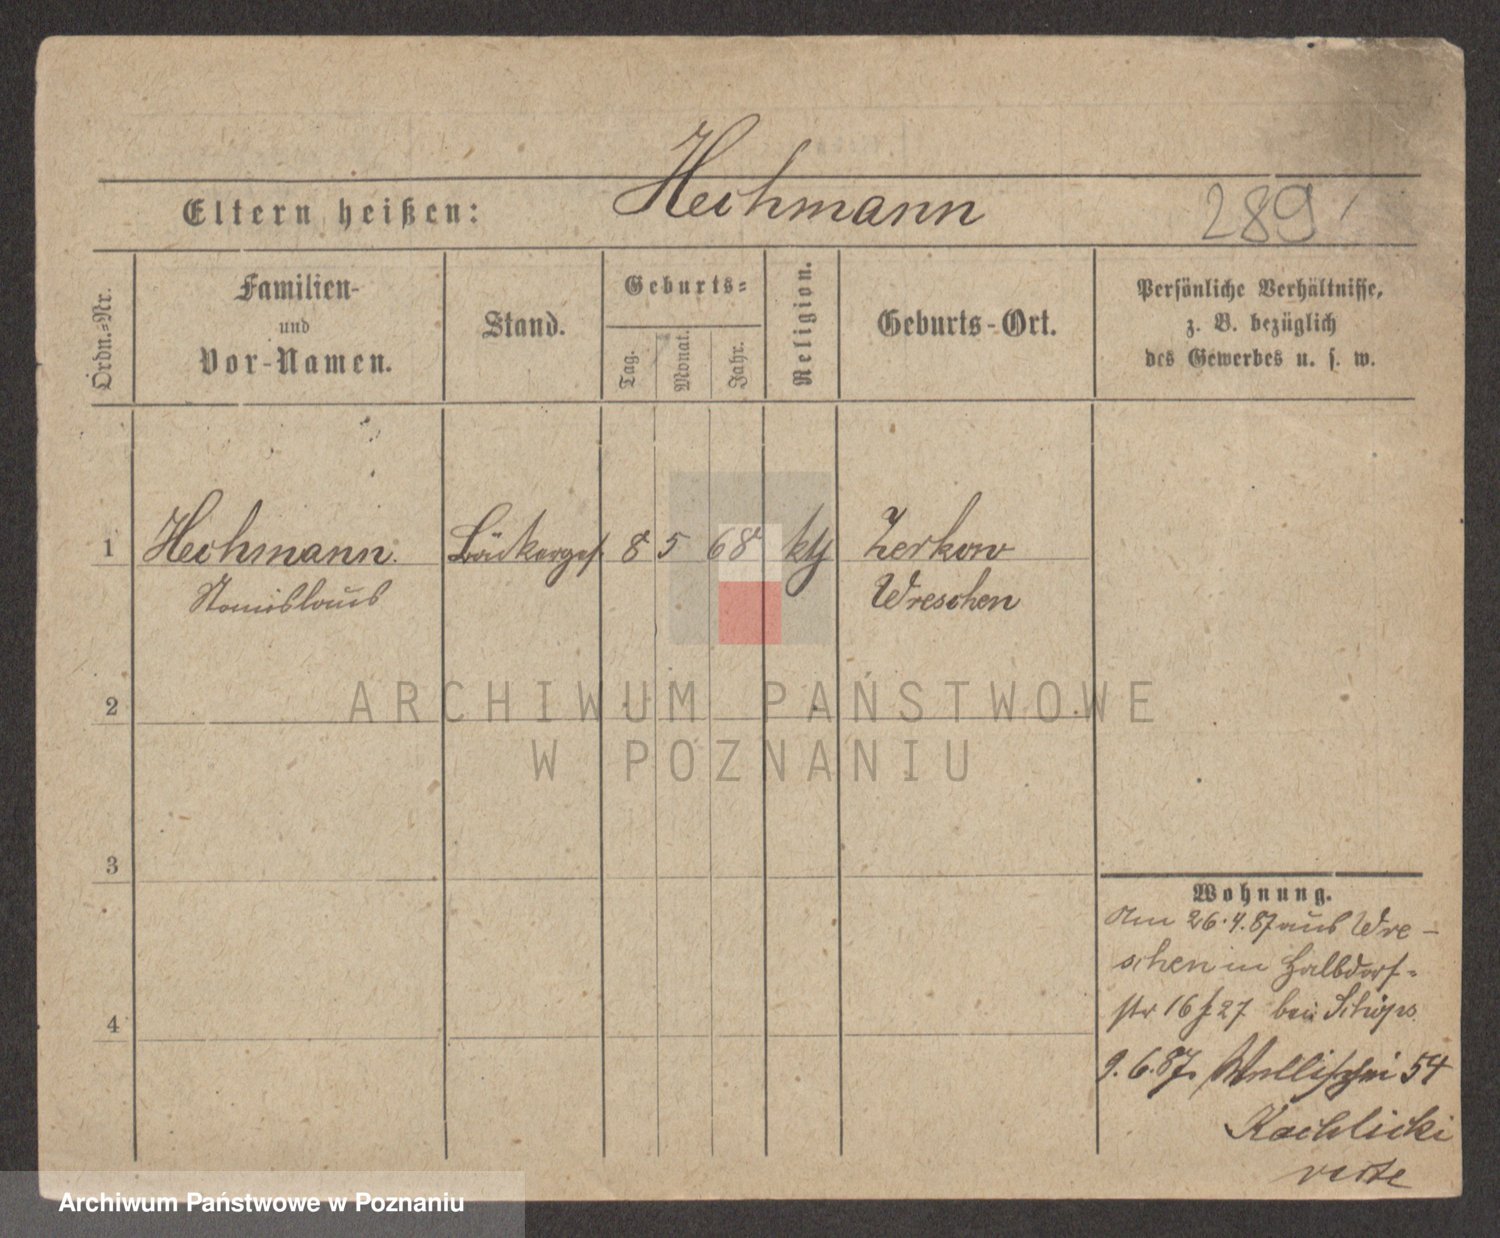 Hechmann
Eltern heißen:
289
Ordn.=Nr.
Familien-
und
Vor-Namen.
Stand.
Geburts=
Tag.
Monat.
Jahr.
Religion.
Geburts-Ort.
Persönliche Verhältnisse,
z. B. bezüglich
des Gewerbes u. s. w.
1
Hechmann.
Stanislaus
Bäckerges.
8
5
68
kth
Zerkow
Wreschen
2
3
4
Wohnung.
Am 26.4.87 aus Wre-
schen in Halbdorf-
str 16/27 bei
9.6.87. Wallischei 54
Kachlicki
verte
ARCHIWUM PAŃSTWOWE
W POZNANIU
Archiwum Państwowe w Poznaniu